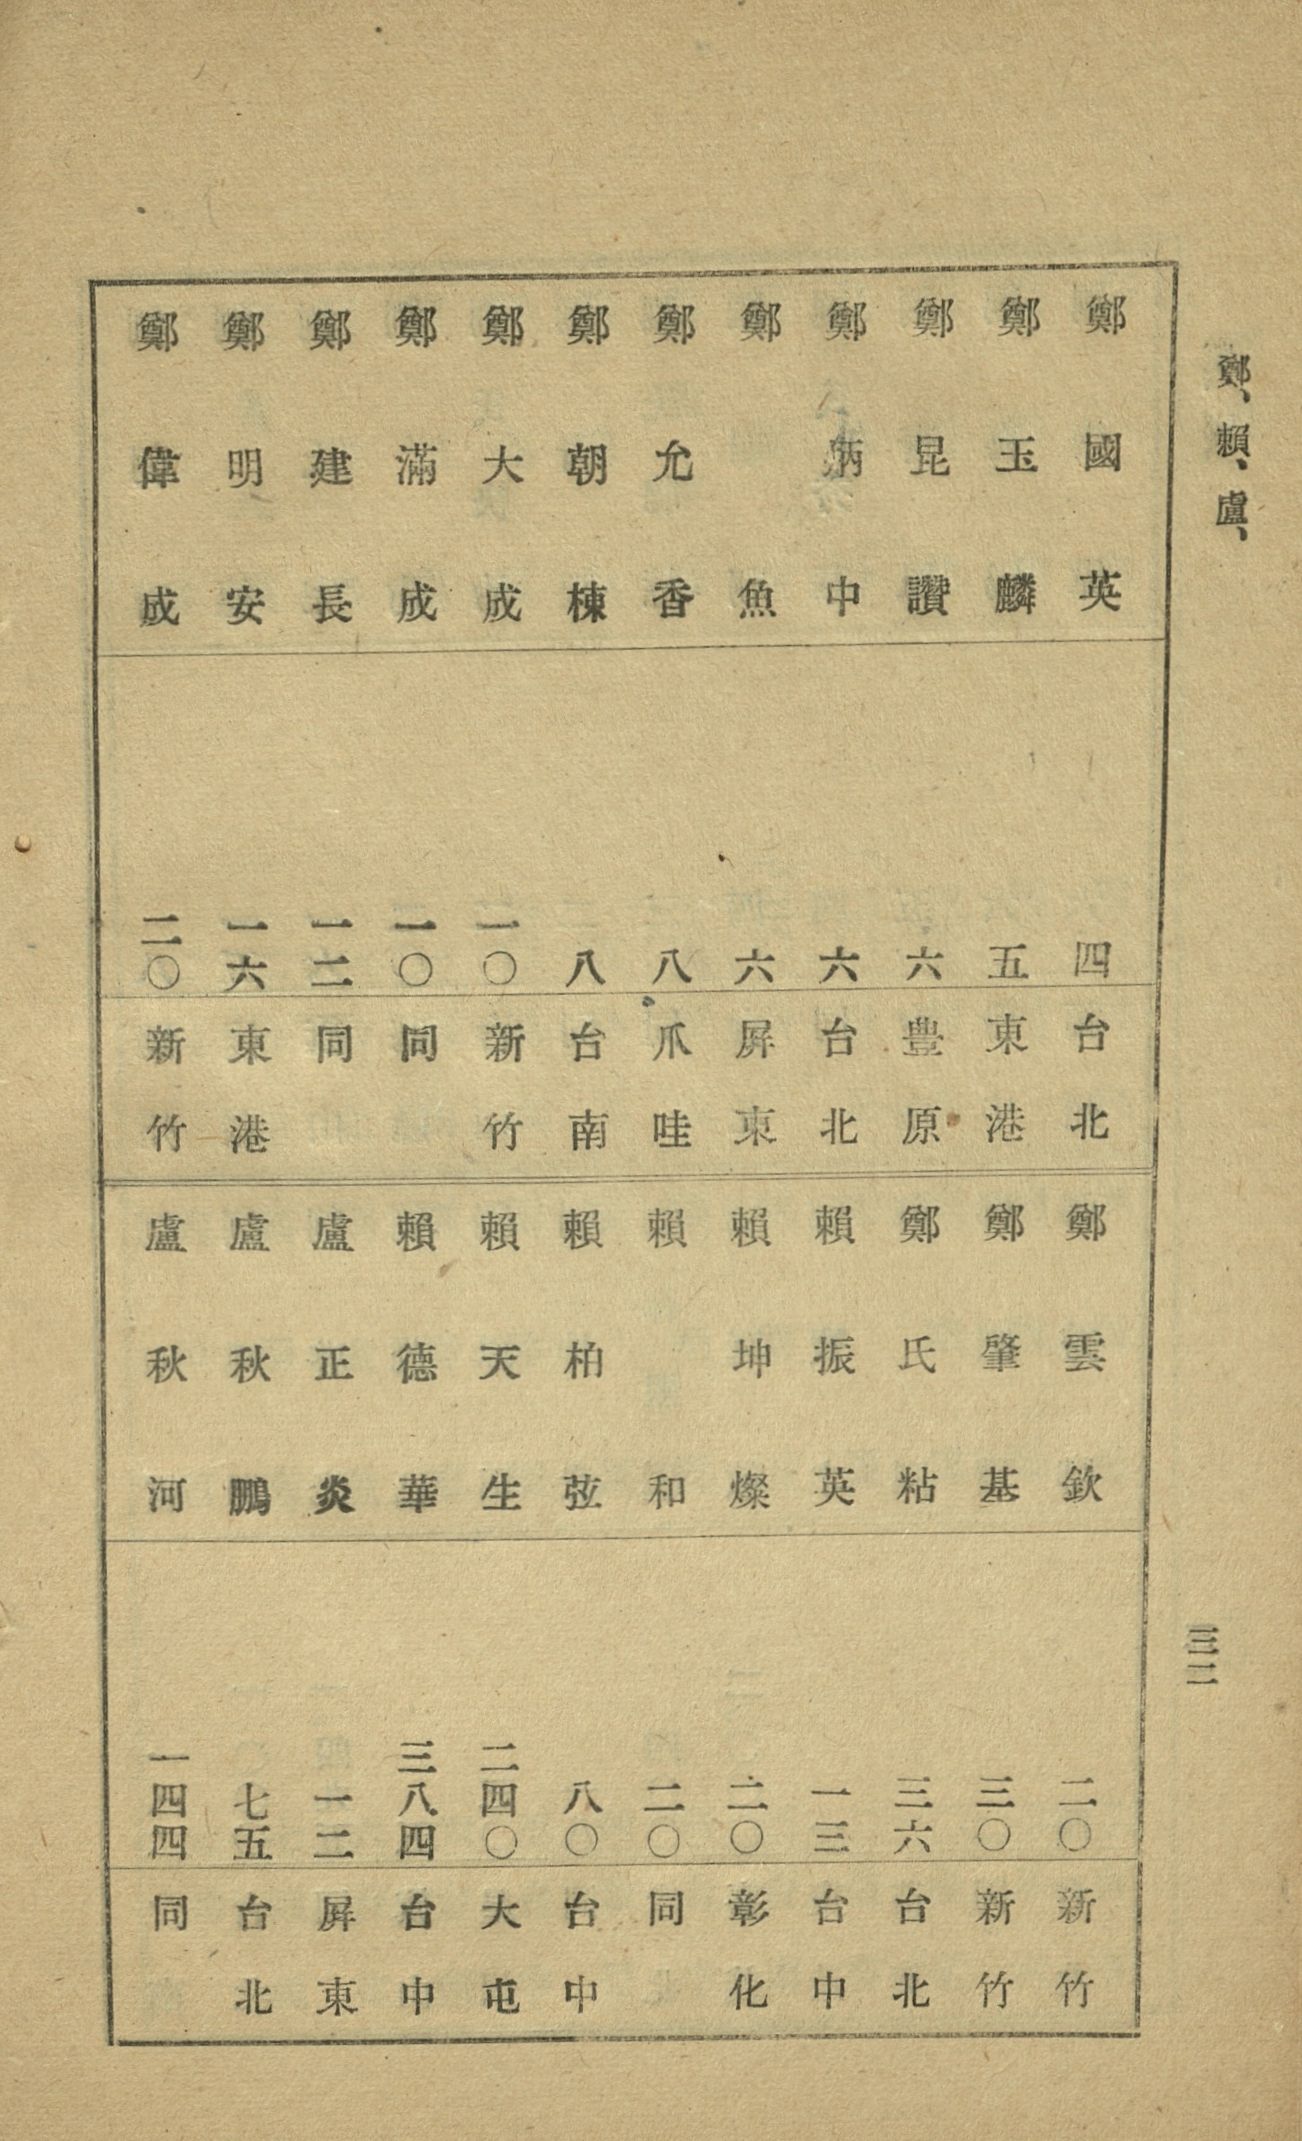 鄭、賴、盧、
三二
鄭國英 四 台北
鄭玉麟 五 東港
鄭昆讚 六 豊原
鄭炳中 六 台北
鄭魚 六 屏東
鄭允香 八 爪哇
鄭朝棟 八 台南
鄭大成 一〇 新竹
鄭滿成 一〇 同
鄭建長 一二 同
鄭明安 一六 東港
鄭偉成 二〇 新竹
鄭雲欽 二〇 新竹
鄭肇基 三〇 新竹
鄭氏粘 三六 台北
賴振英 一三 台中
賴坤燦 二〇 彰化
賴和 二〇 同
賴柏弦 八〇 台中
賴天生 二四〇 大屯
賴德華 三八四 台中
盧正炎 一二 屏東
盧秋鵬 七五 台北
盧秋河 一四四 同